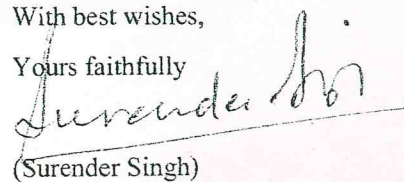 With best wishes,
Yours faithfully
Surender Singh
(Surender Singh)